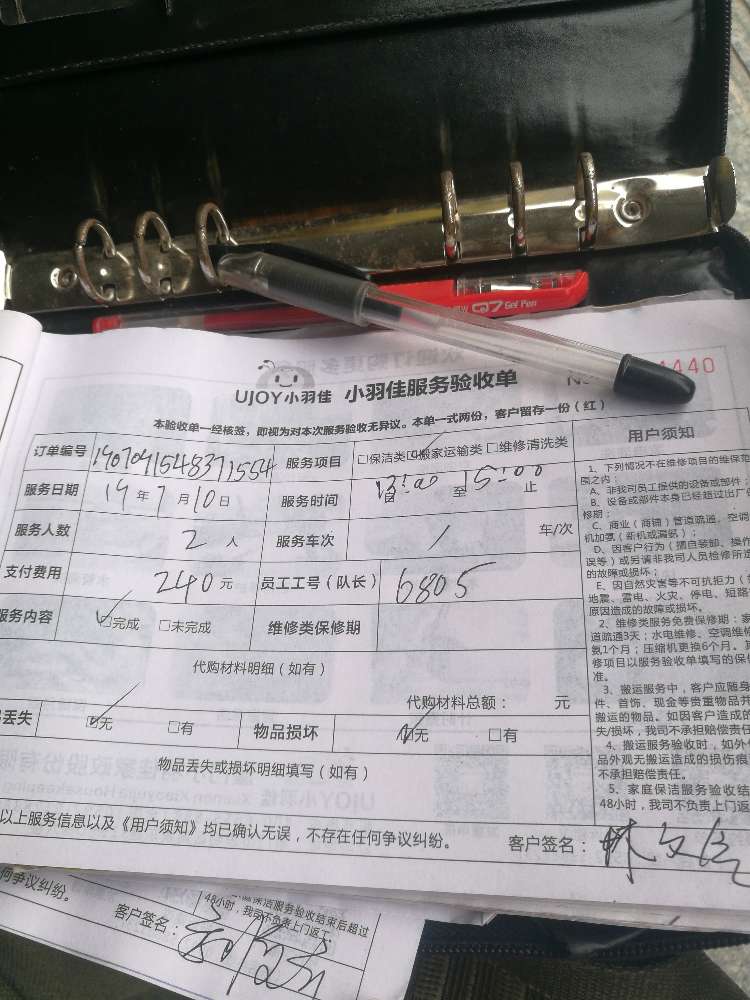 Q7 Gel Pen
UJOY小羽佳 小羽佳服务验收单 No 4440
本验收单一经核签，即视为对本次服务验收无异议。本单一式两份，客户留存一份（红）
订单编号 1907091548371554 服务项目 □保洁类 ☑搬家运输类 □维修清洗类
服务日期 19年7月10日 服务时间 自13:00至15:00止
服务人数 2人 服务车次 / 车/次
支付费用 240元 员工工号（队长） 6805
服务内容 ☑完成 □未完成 维修类保修期
代购材料明细（如有）
代购材料总额： 元
丢失 ☑无 □有 物品损坏 ☑无 □有
物品丢失或损坏明细填写（如有）
以上服务信息以及《用户须知》均已确认无误，不存在任何争议纠纷。
客户签名：
用户须知
1、下列情况不在维修项目的维保范
围之内：
A、非我司员工提供的设备或部件；
B、设备或部件本身已经超过出厂
修期；
C、商业（商铺）管道疏通，空调
机加氨（新机或漏氨）；
D、因客户行为（擅自装卸、操作
误等）或另请非我司人员检修所造
的故障或损坏；
E、因自然灾害等不可抗拒力（
地震、雷电、火灾、停电、短路
原因造成的故障或损坏。
2、维修类服务免费保修期：家
道疏通3天；水电维修、空调维修
氨1个月；压缩机更换6个月。其
修项目以服务验收单填写的保修
准。
3、搬运服务中，客户应随身
件、首饰、现金等贵重物品并
搬运的物品。如因客户造成的
失/损坏，我司不承担赔偿责任
4、搬运服务验收时，如外包
品外观无搬运造成的损伤痕
不承担赔偿责任。
5、家庭保洁服务验收结
48小时，我司不负责上门返工
何争议纠纷。
保洁服务验收结束后超过
48小时，我司不负责上门返工。
客户签名：